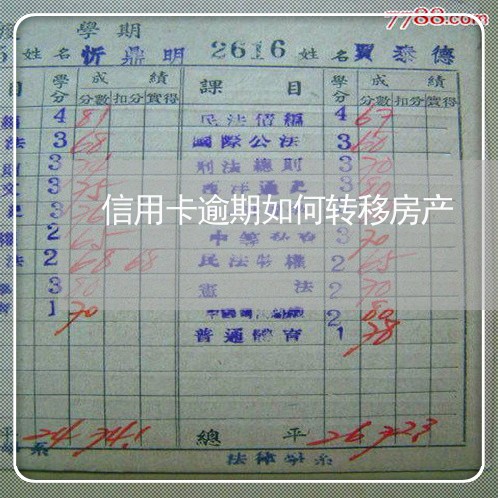 7788.com
學期
姓名 忻鼎明 2616 姓名 賈泰德
目 學分 成績 課目 學分 成績
分數 扣分 實得 分數 扣分 實得
4 81 民法債編 4 67
法 3 68 國際公法 3 60
3 刑法總則 3 70
文 3 75 西洋通史 80
信用卡逾期如何转移房产
權 2 65 3 70
法 2 68 68 民法物權 2 65
3 80 憲法 2 70
1 70 2 80
普通體育 1 78
平 24 74.1 總平 26 72.3
系 法律學系